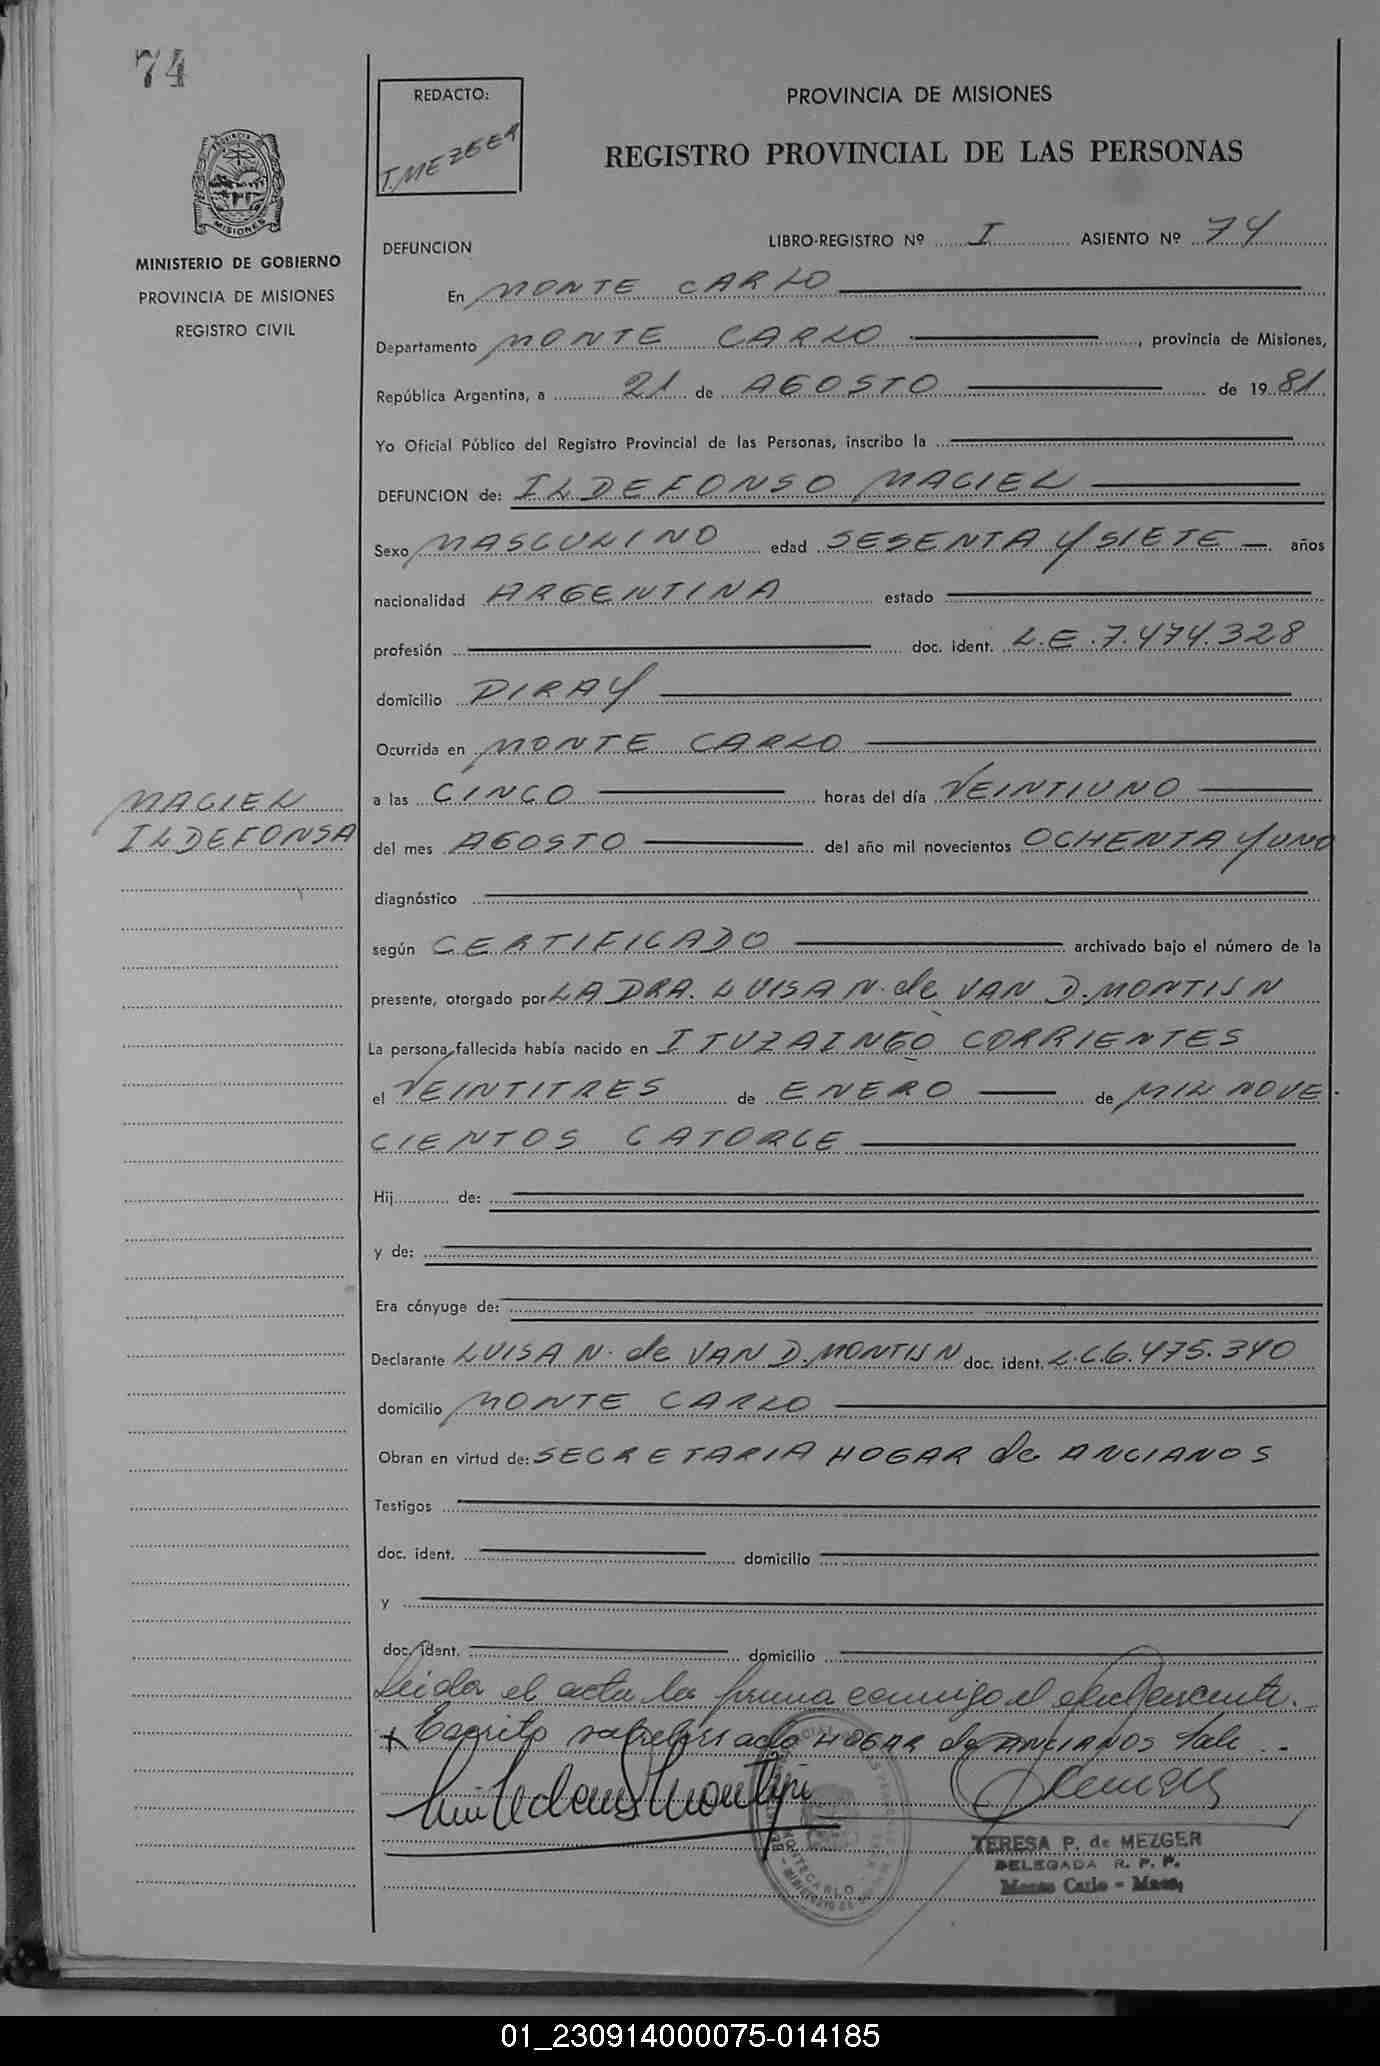 74
REDACTO:
T. MEZGER
PROVINCIA DE MISIONES
REGISTRO PROVINCIAL DE LAS PERSONAS
MISIONES
MINISTERIO DE GOBIERNO
PROVINCIA DE MISIONES
REGISTRO CIVIL
DEFUNCION
LIBRO-REGISTRO Nº I ASIENTO Nº 74
En MONTE CARLO
Departamento MONTE CARLO, provincia de Misiones,
República Argentina, a 21 de AGOSTO de 1981
Yo Oficial Público del Registro Provincial de las Personas, inscribo la
DEFUNCION de: ILDEFONSO MACIEL
Sexo MASCULINO edad SESENTA Y SIETE años
nacionalidad ARGENTINA estado
profesión doc. ident. L.E. 7.474.328
domicilio PIRAY
Ocurrida en MONTE CARLO
MACIEL
ILDEFONSA
a las CINCO horas del día VEINTIUNO
del mes AGOSTO del año mil novecientos OCHENTA Y UNO
diagnóstico
según CERTIFICADO archivado bajo el número de la
presente, otorgado por LA DRA. LUISA N. de VAN D. MONTIJN
La persona fallecida había nacido en ITUZAINGO CORRIENTES
el VEINTITRES de ENERO de MIL NOVE
CIENTOS CATORCE
Hij de:
y de:
Era cónyuge de:
Declarante LUISA N. de VAN D. MONTIJN doc. ident. L.C. 6.475.340
domicilio MONTE CARLO
Obran en virtud de: SECRETARIA HOGAR de ANCIANOS
Testigos
doc. ident. domicilio
y
doc. ident. domicilio
Leida el acta la firma conmigo el
Escrito HOGAR de ANCIANOS Vale
TERESA P. de MEZGER
DELEGADA R. P. P.
Monte Carlo - Mnes.
01_230914000075-014185